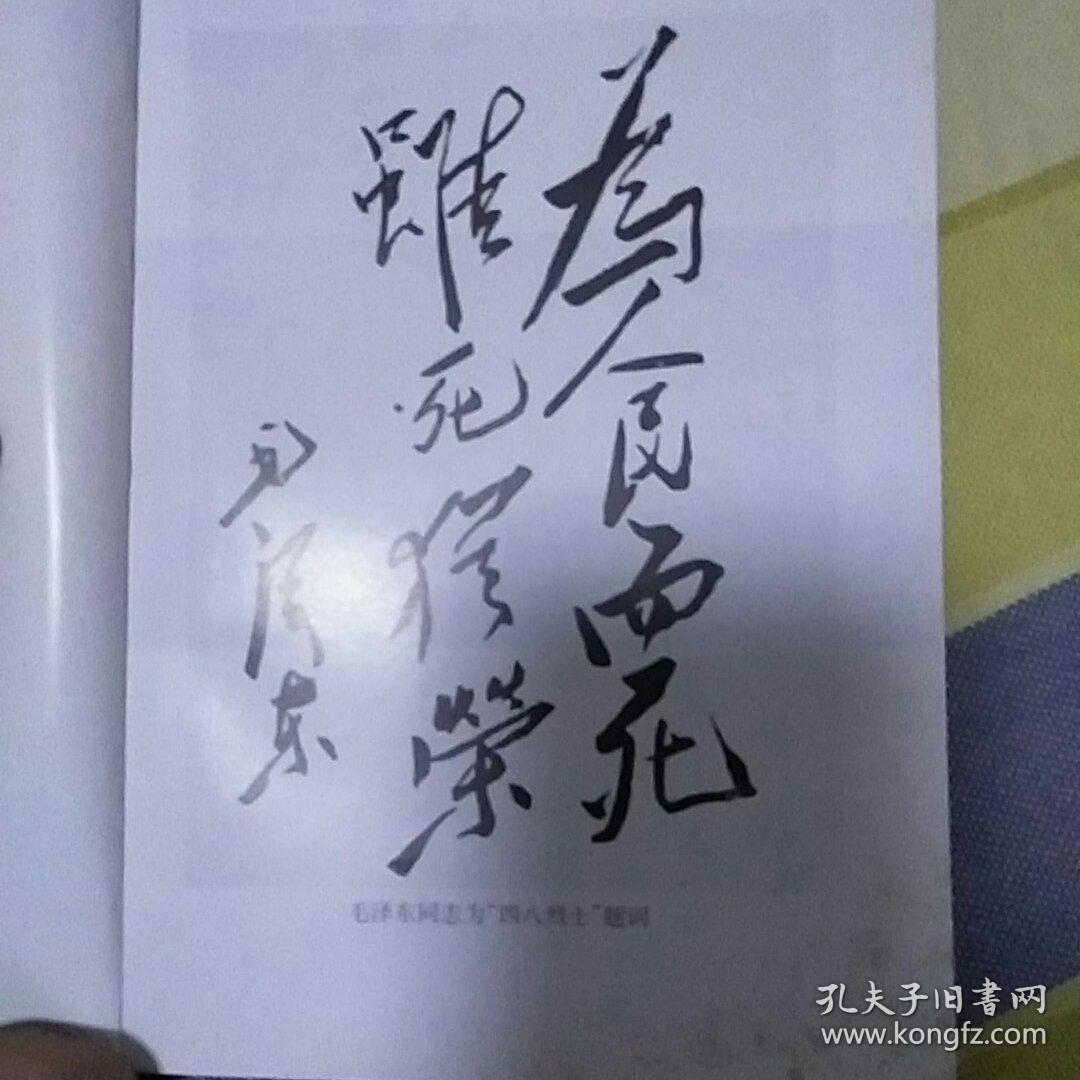 為人民而死
雖死猶榮
毛澤东
毛泽东同志为“四八烈士”题词
孔夫子旧書网
www.kongfz.com